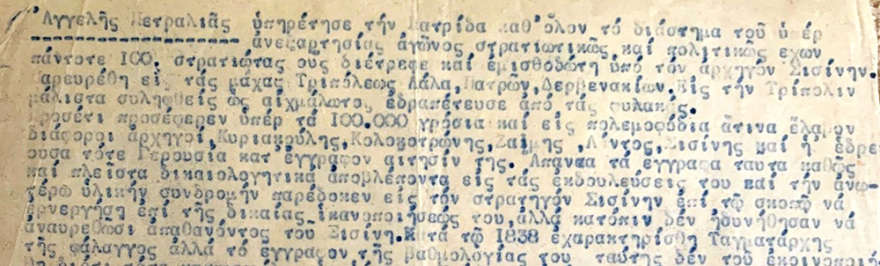 Ἀγγελῆς Πετραλιᾶς ὑπηρέτησε τήν Πατρίδα καθ' ὅλον τό διάστημα τοῦ ὑπέρ
ἀνεξαρτησίας ἀγῶνος στρατιωτικῶς καί πολιτικῶς ἔχων
πάντοτε 100. στρατιώτας ους διέτρεφε καί ἐμισθοδώτη ὑπό τόν ἀρχηγόν Σισίνην.
Παρευρέθη εἰς τάς μάχας Τριπόλεως Λάλα, Πατρῶν, Δερβενακίων. Εἰς τήν Τρίπολιν
μάλιστα συληφθείς ὡς αἰχμάλωτος ἐδραπέτευσε ἀπό τάς φυλακάς.
Προσέτι προσέφερεν ὑπέρ τά 100.000 γρόσια καί εἰς πολεμοφόδια ἅτινα ἔλαμον
διάφοροι ἀρχηγοί, Κυριακούλης, Κολοκοτρώνης, Ζαίμης, Λόντος, Σισίνης καί ἡ ἑδρεύ
ουσα τότε Γερουσία κατ ἔγγραφον αιτησίν της. Απαντα τά ἔγγραφα ταυτα καθώς
καί πλεῖστα δικαιολογητικά ἀποβλέποντα εἰς τάς ἐκδουλεύσεις του καί τήν ἀνω-
τέρω ὑλικήν συνδρομήν παρέδοκεν εἰς τόν στρατηγόν Σισίνην ἐπί τῶ σκοπῶ νά
ἐνεργήση ἐπί τῆς δικαίας ἱκανοποιήσεώς του, ἀλλά κατόπιν δέν ἠδυνήθησαν νά
ἀναυρεθῶσι ἀπαθανόντος τοῦ Σισίνη. Κατά τῶ 1838 ἐχαρακτηρίσθη Ταγματάρχης
τῆς φάλαγγος ἀλλά τό ἔγγραφον τῆς βαθμολογίας του ταύτης δέν τοῦ ἐκοινοποιή